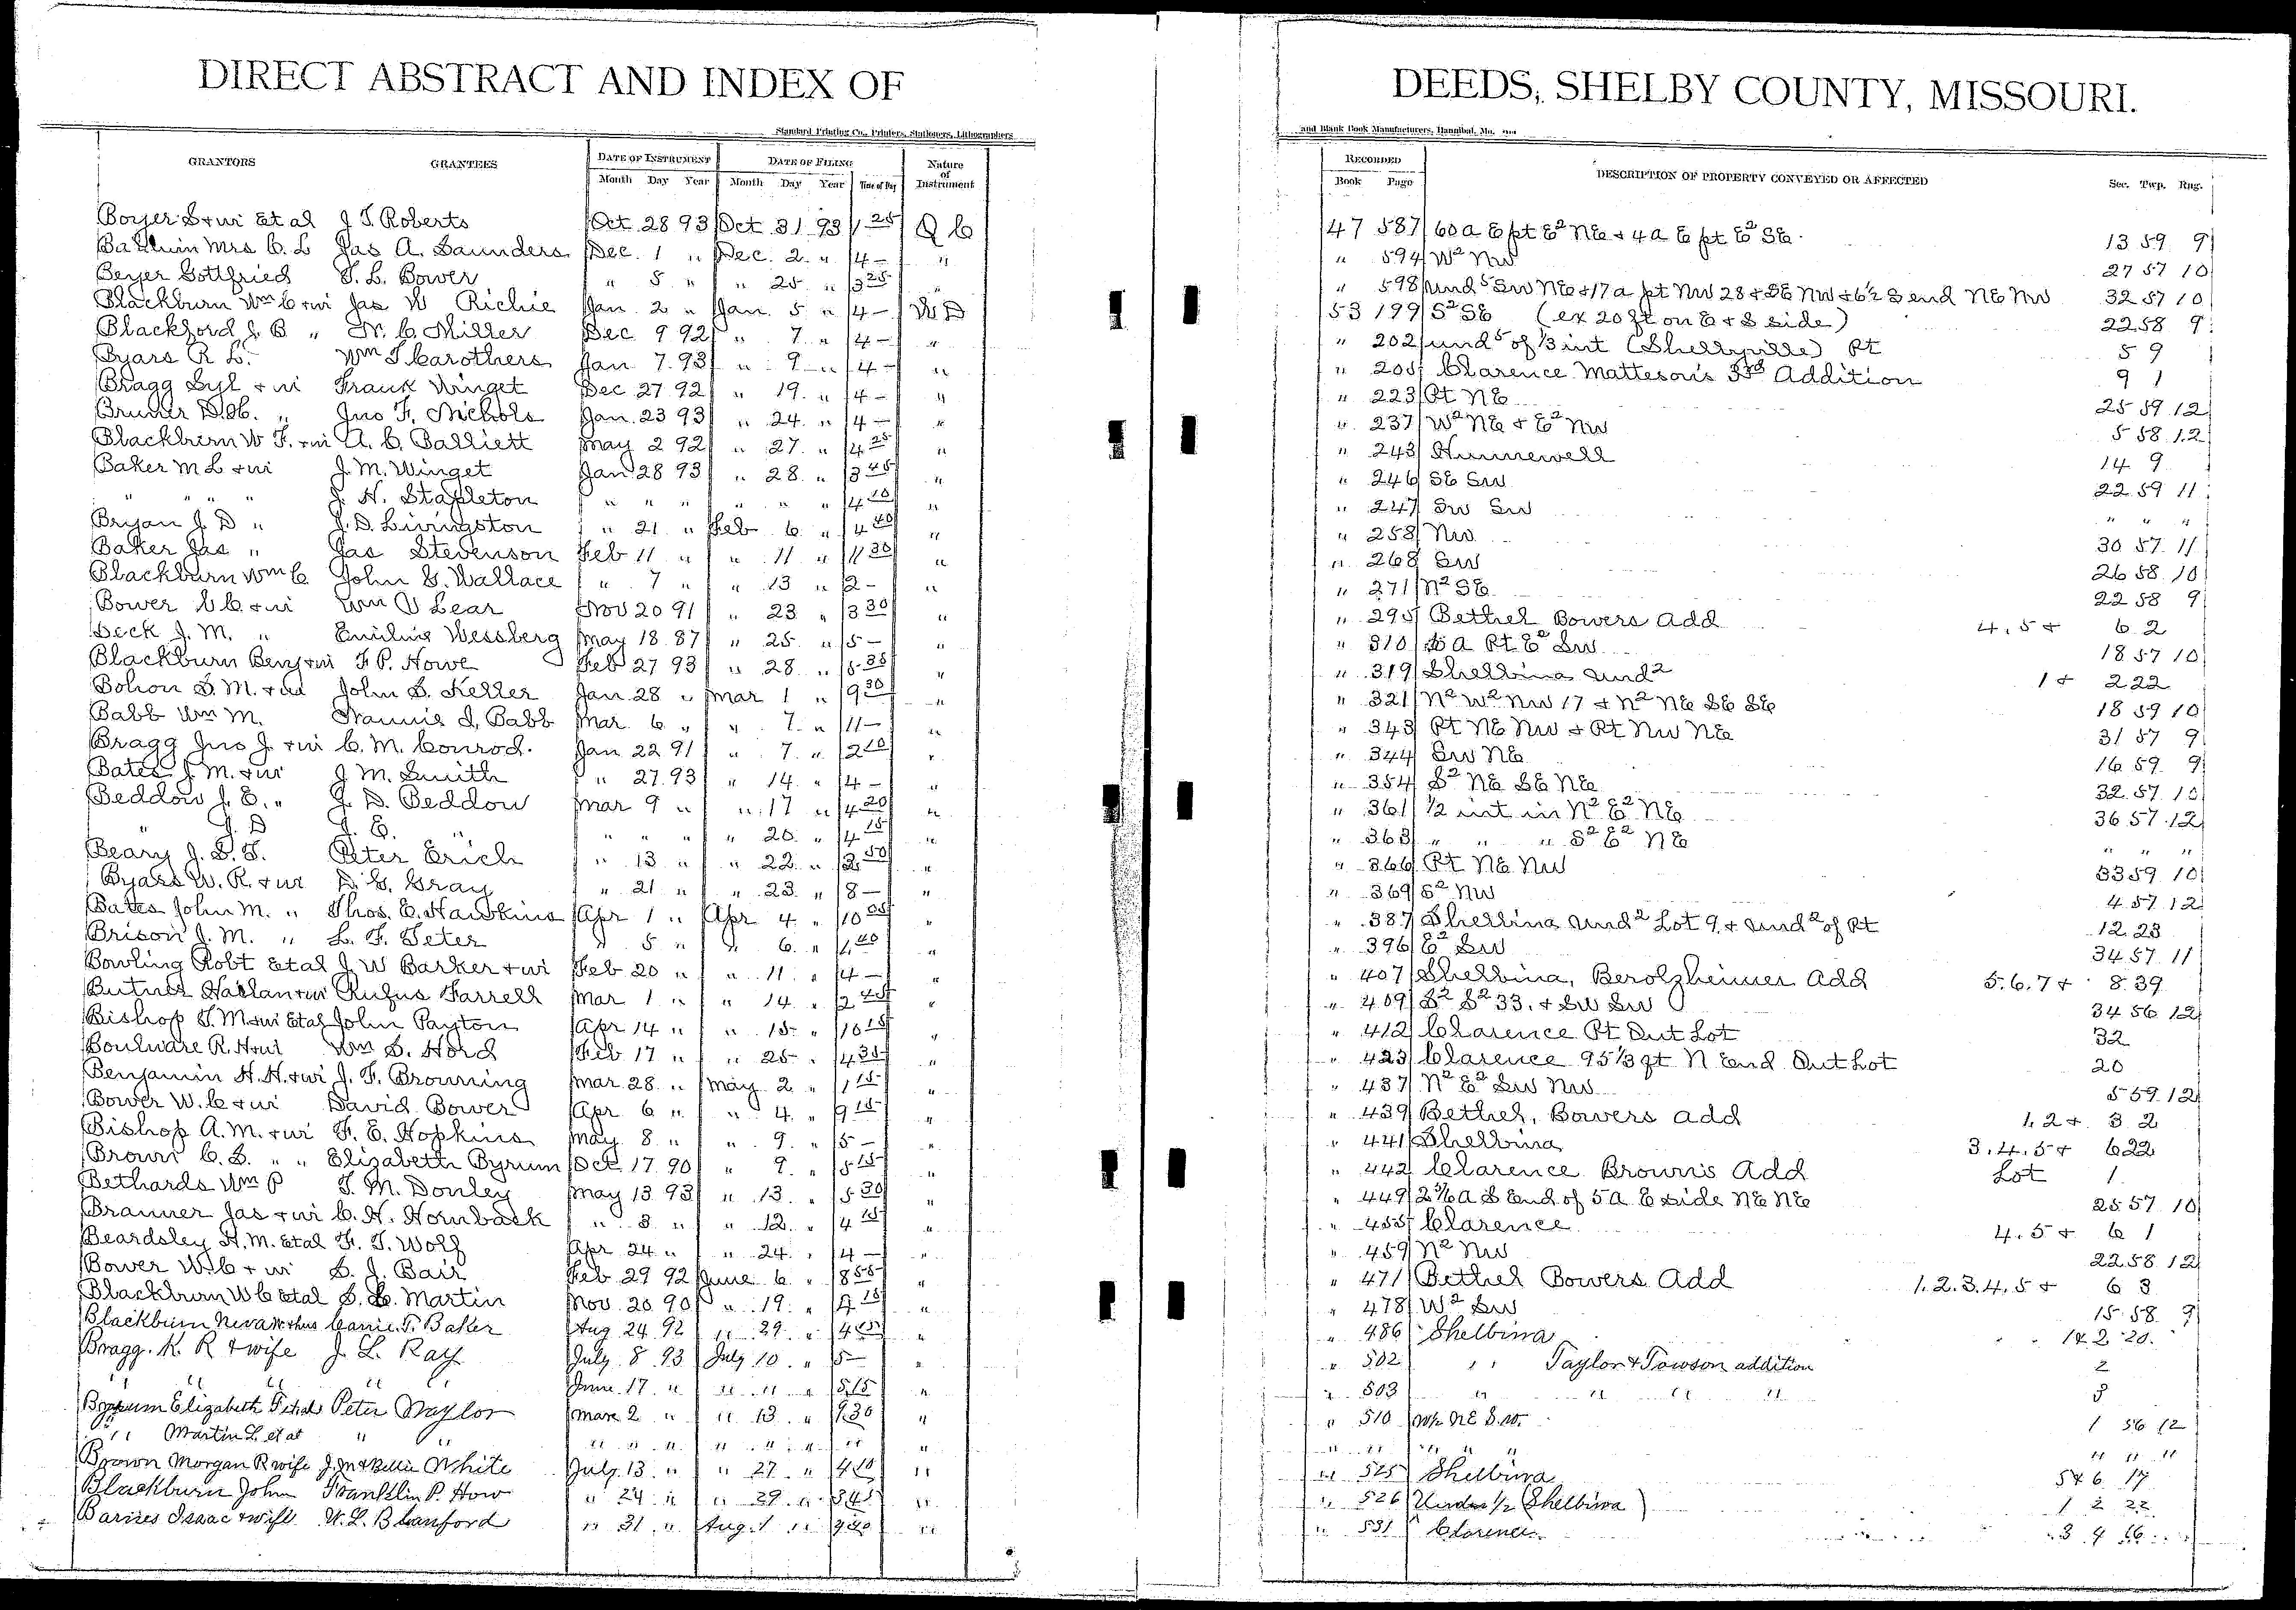 DIRECT ABSTRACT AND INDEX OF
Standard Printing Co., Printers, Stationers, Lithographers
GRANTORS GRANTEES DATE OF INSTRUMENT DATE OF FILING Nature of Instrument
Month Day Year Month Day Year Time of Day
Boyer S & wi Et al J. T. Roberts Oct. 28 93 Oct. 31 93 1 25 Q C
Baldwin Mrs C. L Jas A. Saunders Dec. 1 " Dec. 2 " 4 - "
Beyer Gottfried T. L. Bower " 5 " " 25 " 3 25 "
Blackburn Wm C & wi Jas W Richie Jan. 2 " Jan. 5 " 4 - W D
Blackford J. B " N. C. Miller Dec 9 92 " 7 " 4 - "
Byars R L. Wm T Carothers Jan 7 93 " 9 " 4 - "
Bragg Syl & wi Frank Winget Dec 27 92 " 19 " 4 - "
Bruner D. H. " Jno F. Nichols Jan 23 93 " 24 " 4 - "
Blackburn W F. & wi A. C. Balliett May 2 92 " 27 " 4 25 "
Baker M L & wi J. M. Winget Jan 28 93 " 28 " 3 45 "
" " " " J. H. Stapleton " " " " " " 4 20 "
Bryan J. D " J. D. Livingston " 21 " Feb 6 " 4 40 "
Baker Jas " Jas Stevenson Feb 11 " " 11 " 11 30 "
Blackburn Wm C John G. Wallace " 7 " " 13 " 2 - "
Bower V C. & wi Wm V Lear Nov 20 91 " 23 " 3 30 "
Beck J. M. " Emiline Wessberg May 18 87 " 25 " 5 - "
Blackburn Benj & wi F P. Howe Feb 27 93 " 28 " 5 35 "
Bohon S. M. & wi John S. Keller Jan 28 " Mar 1 " 9 30 "
Babb Wm M. Nannie J. Babb Mar. 6 " " 7 " 11 - "
Bragg Jno J. & wi C. M. Conrod. Jan 22 91 " 7 " 2 10 "
Bates J. M. & wi J M. Smith " 27 93 " 14 " 4 - "
Beddow J. E. " J. D. Beddow Mar 9 " " 17 " 4 20 "
" J. D J. E. " " " " " 20 " 4 15 "
Beary J. S. T. Peter Erich " 13 " " 22 " 2 50 "
Byars W. R. & wi D. G. Gray " 21 " " 23 " 8 - "
Bates John M. " Thos. E. Hawkins Apr 1 " Apr 4 " 10 05 "
Brison J. M. " L. F. Teter " 5 " " 6 " 1 40 "
Bowling Robt Et al J. W Barker & wi Feb 20 " " 11 " 4 - "
Butner Harlan & wi Rufus Farrell Mar 1 " " 14 " 2 45 "
Bishop T. M & wi Et al John Payton Apr 14 " " 15 " 10 15 "
Boulware R. H & wi Wm S. Hord Feb 17 " " 25 " 4 35 "
Benjamin H. H. & wi J. F. Browning Mar 28 " May 2 " 1 15 "
Bower W. C & wi David Bower Apr 6 " " 4 " 9 15 "
Bishop A. M. & wi F. E. Hopkins May 8 " " 9 " 5 - "
Brown C. S. " " Elizabeth Byrum Oct 17 90 " 9 " 5 15 "
Bethards Wm P T. M. Donley May 13 93 " 13 " 5 30 "
Branner Jas & wi C. H. Hornback " 3 " " 12 " 4 15 "
Beardsley H. M. Et al F. T. Wolf Apr 24 " " 24 " 4 - "
Bower W. C & wi S. J. Bair Feb 29 92 June 6 " 8 55 "
Blackburn W C et al S. E. Martin Nov. 20 90 " 19 " 4 15 "
Blackburn Neva Carrie. T. Baker Aug 24 92 " 29 " "
Bragg. K. R & wife J. L. Ray July 8 93 July 10 " 5 - "
" " " " June 17 " " 11 " 5 15 "
Byrum Elizabeth F et al Peter Naylor Mar 2 " " 13 " 9 30 "
" Martin L. et al " " " " " " " " " "
Brown Morgan R wife J. M & Bettie White July 13 " " 27 " 4 10 "
Blackburn John Franklin P. How " 24 " " 29 " 3 45 "
Barnes Isaac & wife W. L. Blanford " 31 " Aug. 1 " "
DEEDS, SHELBY COUNTY, MISSOURI.
and Blank Book Manufacturers, Hannibal, Mo.
RECORDED DESCRIPTION OF PROPERTY CONVEYED OR AFFECTED Sec. Twp. Rng.
Book Page
47 587 60 a E pt E2 NE & 4 a E pt E2 SE. 13 59 9
" 594 W2 NW 27 57 10
" 598 und 5 SW NE & 17 a pt NW 28 & SE NW & 6 1/2 S end NE NW 32 57 10
53 199 S2 SE (ex 20 ft on E & S side) 22 58 9
" 202 und 5 of 1/3 int (Shelbyville) Pt 5 9
" 205 Clarence Matteson's 3rd Addition 9 1
" 223 Pt NE 25 59 12
" 237 W2 NE & E2 NW 5 58 12
" 243 Hunnewell 14 9
" 246 SE SW 22 59 11
" 247 SW SW " " "
" 258 NW 30 57 11
" 268 SW 26 58 10
" 271 N2 SE 22 58 9
" 295 Bethel Bowers Add 4. 5 & 6 2
" 310 a Pt E2 SW 18 57 10
" 319 Shelbina und 2 1 & 2 22
" 321 N2 W2 NW 17 & N2 NE SE SE 18 59 10
" 343 Pt NE NW & Pt NW NE 31 57 9
" 344 SW NE 16 59 9
" 354 S2 NE SE NE 32 57 10
" 361 1/2 int in N2 E2 NE 36 57 12
" 363 " " " S2 E2 NE " " "
" 366 Pt NE NW 33 59 10
" 369 S2 NW 4 57 12
" 387 Shelbina und 2 Lot 9 & und 2 of Pt 12 23
" 396 E2 SW 34 57 11
" 407 Shelbina, Berolzheimer Add 5. 6. 7 & 8 39
" 409 S2 S2 33. & SW SW 34 56 12
" 412 Clarence Pt Out Lot 32
" 423 Clarence 95 1/3 ft N End Out Lot 20
" 437 N2 E2 SW NW 5 59 12
" 439 Bethel, Bowers Add 1. 2 & 3 2
" 441 Shelbina 3. 4. 5 & 6 22
" 442 Clarence Browns Add Lot 1
" 449 A S End of 5 A E side NE NE 25 57 10
" 455 Clarence 4. 5 & 6 1
" 459 N2 NW 22 58 12
" 471 Bethel Bowers Add 1. 2. 3. 4. 5 & 6 3
" 478 W2 SW 15 58 9
" 486 Shelbina 1 & 2 20.
" 502 " Taylor & Towson addition 2
" 503 " " " " 3
" 510 W 1/2 NE S.W. 1 56 12
" " " " " " " "
" 525 Shelbina 5 & 6 17
" 526 Undev 1/2 (Shelbina) 1 2 22
" 531 Clarence 3 4